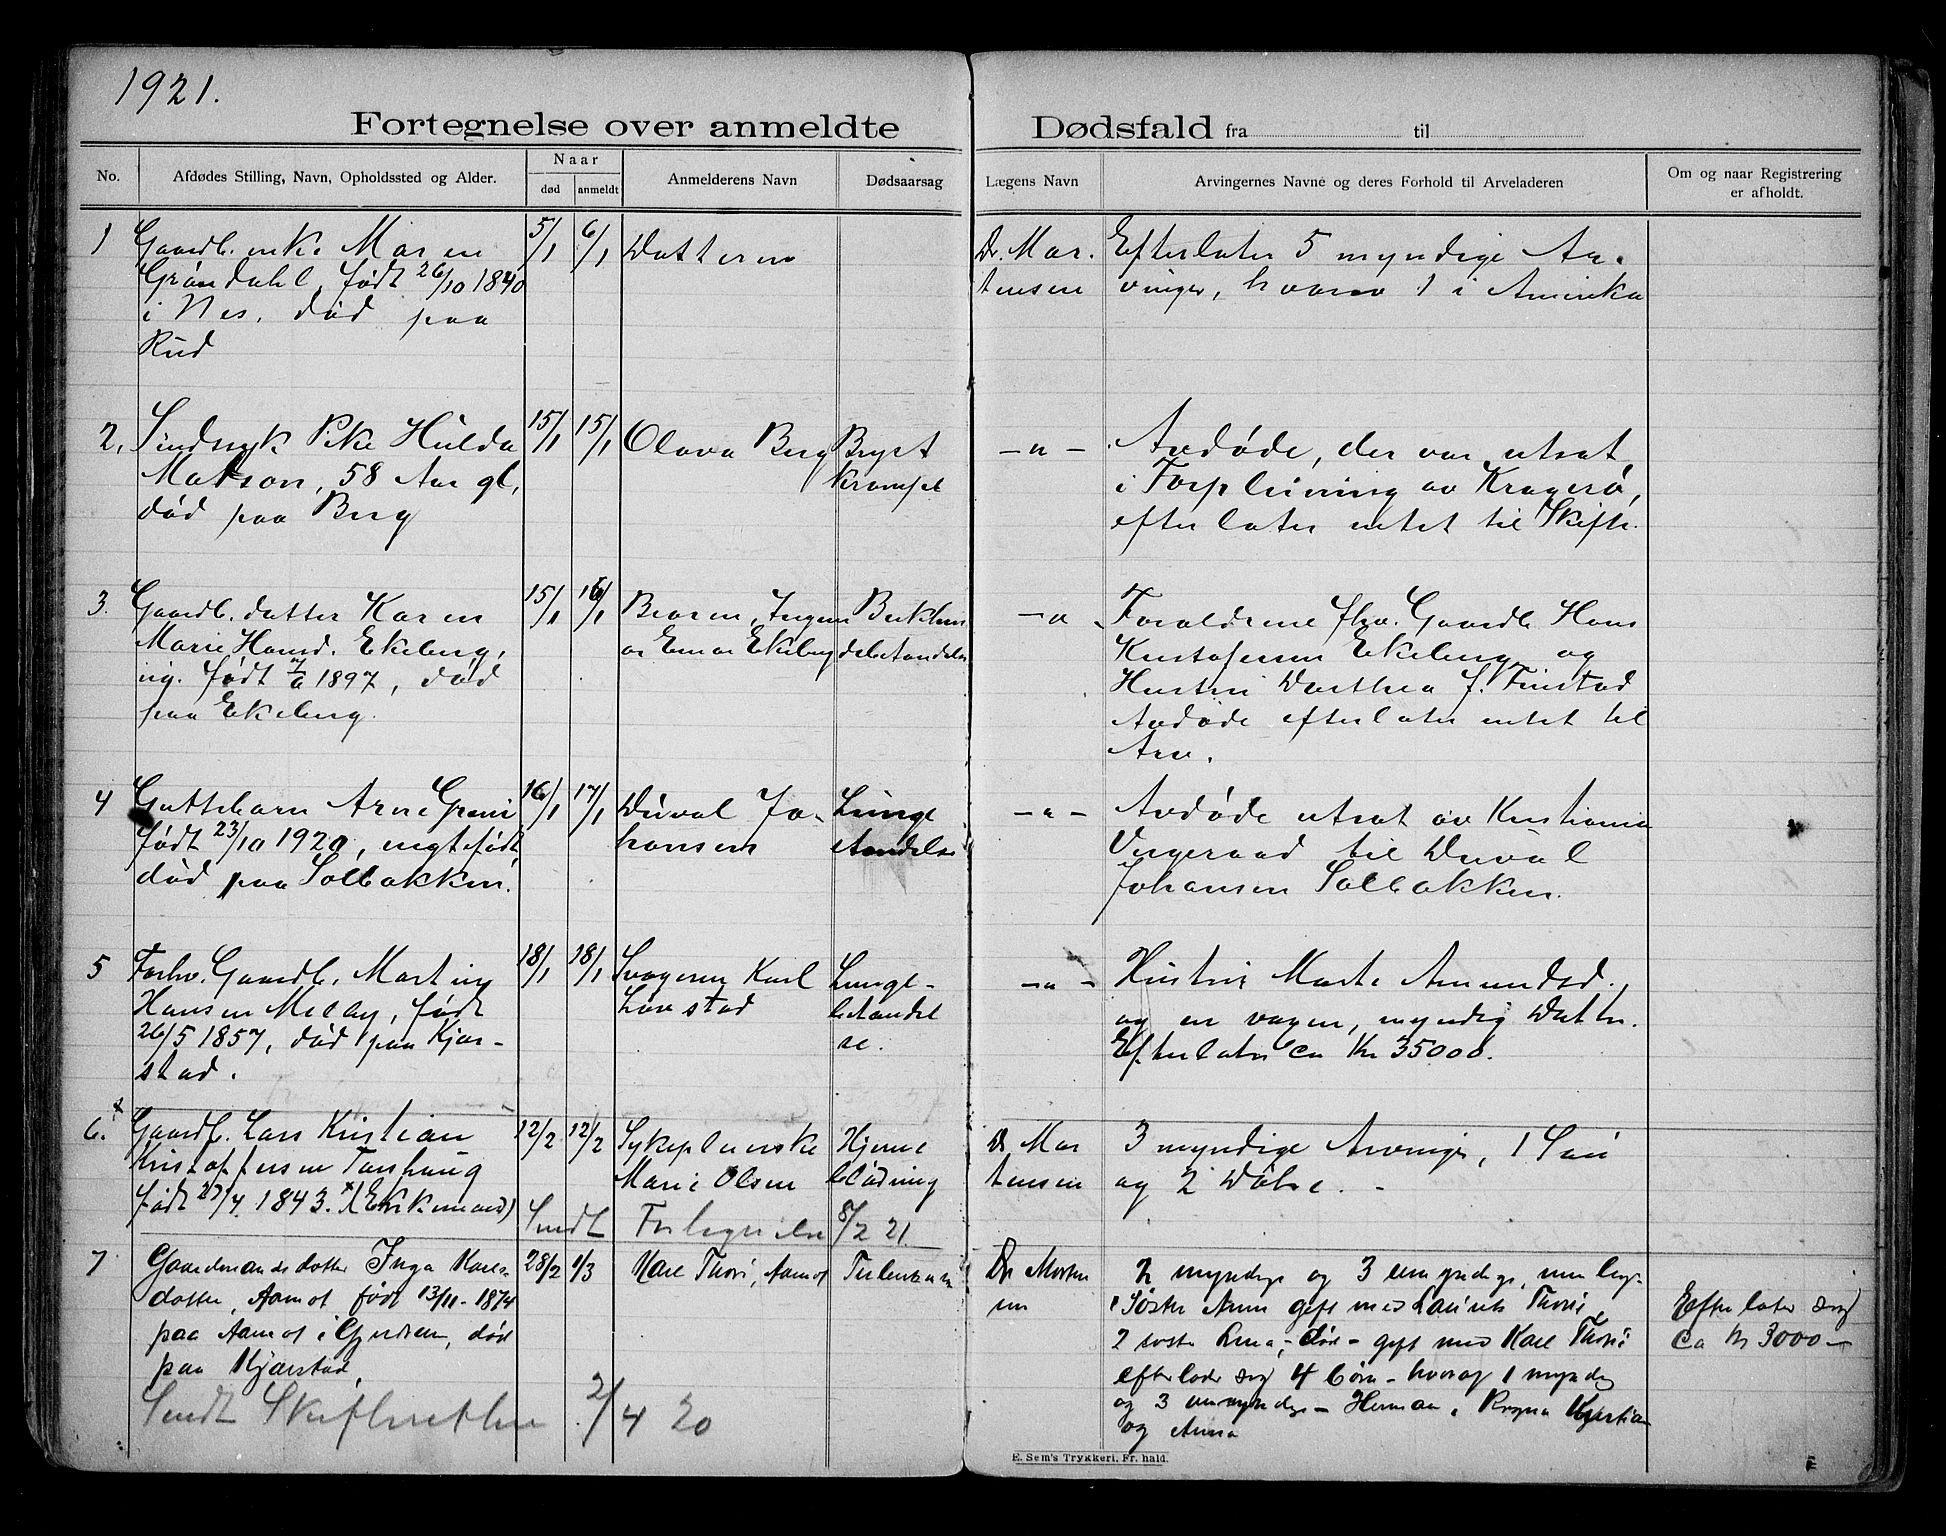 1921.
Fortegnelse over anmeldte Dødsfald fra til
No.
Afdødes Stilling, Navn, Opholdssted og Alder.
Naar
død
anmeldt
Anmelderens Navn
Dødsaarsag
Lægens Navn
Arvingernes Navne og deres Forhold til Arveladeren
Om og naar Registrering
er afholdt.
1 Gaardb. enke Maren 5/1 6/1 Datteren Dr. Mar. Efterlater 5 myndige Ar-
Grøndahl, født 26/10 1840 tensen vinger, hvorav 1 i Amerika
i Nes. død paa
Rud
2, Sindsyk Pike Hulda 15/1 15/1 Olava Berg Bryst -"- Avdøde, der var utsat
Matson, 58 Aar gl, krampe i Forpleining av Kragerø,
død paa Berg efterlater intet til Skifte.
3. Gaardb. datter Karen 15/1 16/1 -"- Forældrene fhv. Gaardb. Hans
Marie Hansd. Ekeberg, Ekeberg Kristofersen Ekeberg og
ug. født 1897, død Hustru Dorthea f. Finstad
paa Ekeberg. Avdøde efterlater intet til
Arv.
4 Guttebarn Arne 16/1 17/1 Düval Jo- Lunge -"- Avdøde utsat av Kristiania
født 23/10 1920, uegtefødt hansen Vergeraad til Düval
død paa Solbakken. Johansen Solbakken.
5 Forhv. Gaardb. Martin 18/1 18/1 Svogeren Karl Lunge- -"- Hustru Marte Amundsd.
Hansen Melby, født Løvstad betændel og en voxen, myndig Datter.
26/5 1857, død paa Kjær- se. Efterlater ca Kr 35000.
stad.
6. Gaardb. Lars Kristian 12/2 12/2 Sykepleierske Hjerne Dr Mar 3 myndige Arvinger, 1 Søn
Kristoffersen Tørshaug Marie Olsen blødning tensen og 2 Døtre.
født 27/4 1843. x(Enkemand)
Sendt 8/2 21.
7 Gaardmandsdatter Inga Karls- 28/2 1/3 Karl Thori, Aamot Dr Morten 2 myndige og 3 umyndige,
datter, Aamot født 13/11-1874 sen 1 Søster gift med Thori Efterlater sig
paa Aamot i Gjerdrum, død 2 søster - død - gift med Karl Thori ca kr 3000-
paa Kjærstad, efterlader sig 4 børn - hvoraf 1 myndig
Sendt Skifteretten 2/4 20 og 3 umyndige - Herman, Ragna Kristian
og Anna
E. Sem's Trykkeri. Fr. hald.